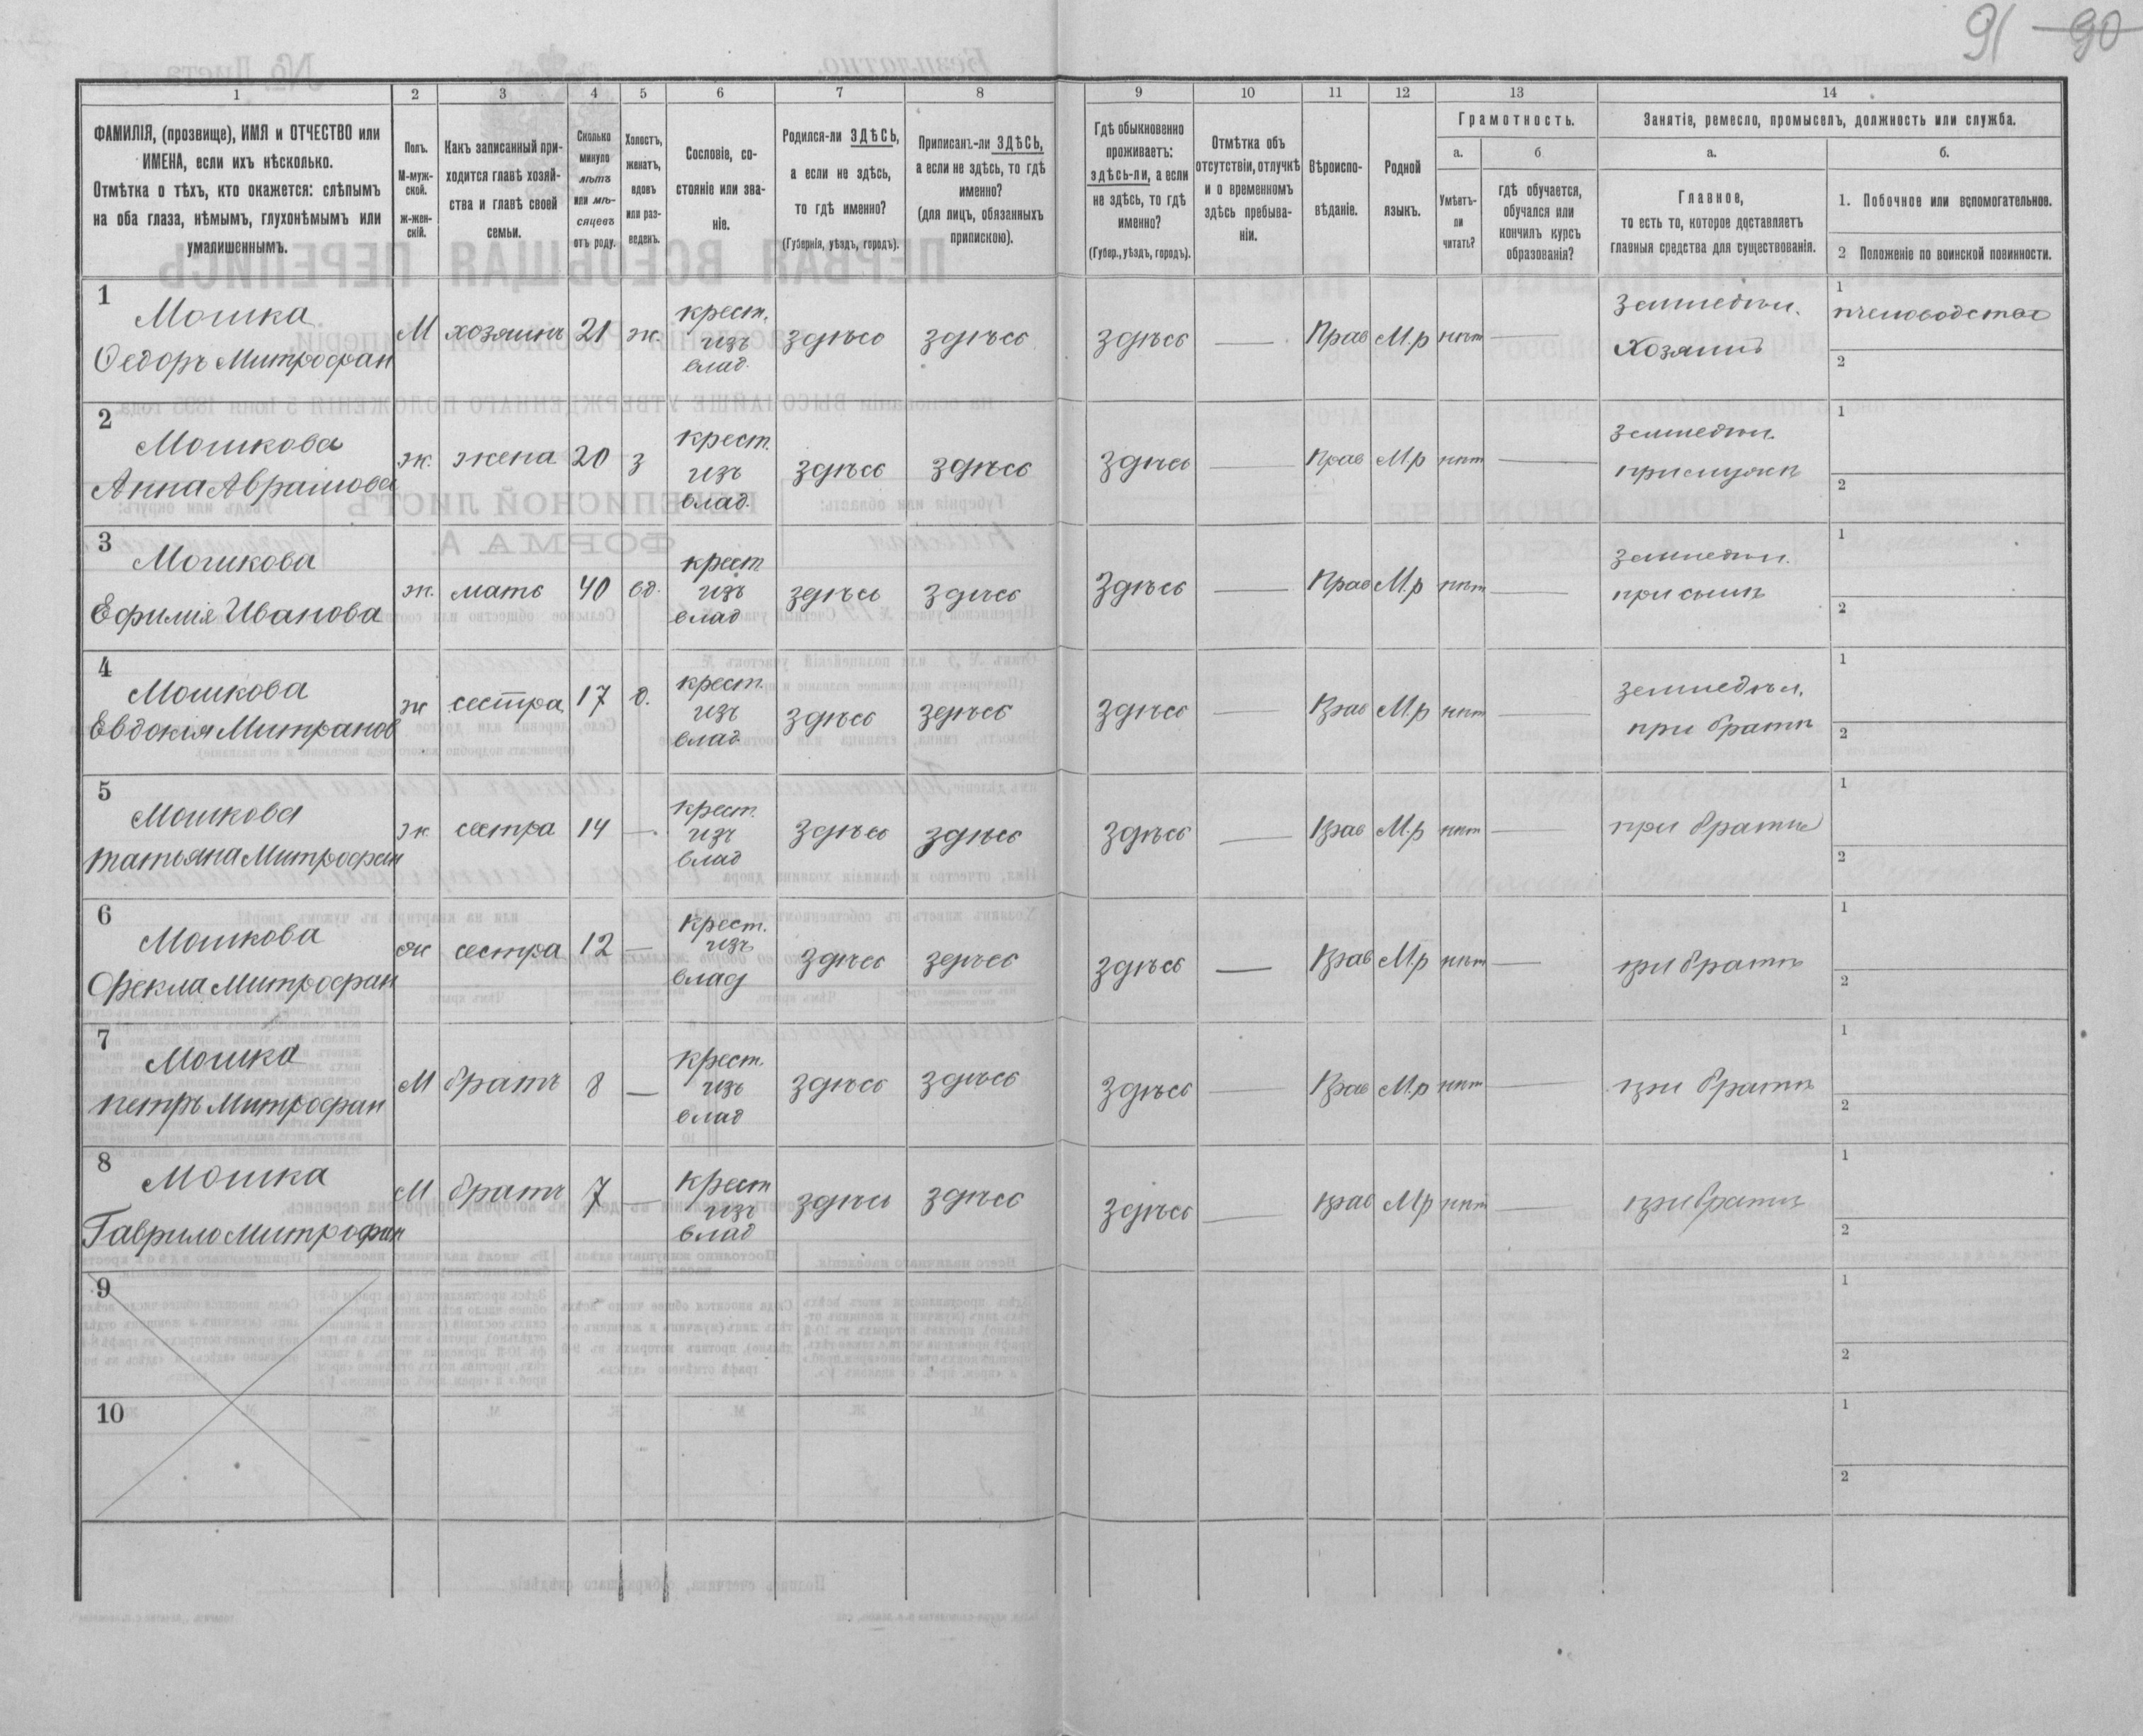 91 90
1 2 3 4 5 6 7 8 9 10 11 12 13 14
ФАМИЛІЯ, (прозвище), ИМЯ и ОТЧЕСТВО или
ИМЕНА, если ихъ нѣсколько.
Отмѣтка о тѣхъ, кто окажется: слѣпымъ
на оба глаза, нѣмымъ, глухонѣмымъ или
умалишеннымъ.
Полъ.
М-муж-
ской.
ж-жен-
скій.
Какъ записанный при-
ходится главѣ хозяй-
ства и главѣ своей
семьи.
Сколько
минуло
лѣтъ
или мѣ-
сяцевъ
отъ роду.
Холостъ,
женатъ,
вдовъ
или раз-
веденъ.
Сословіе, со-
стояніе или зва-
ніе.
Родился-ли ЗДѢСЬ,
а если не здѣсь,
то гдѣ именно?
(Губернія, уѣздъ, городъ).
Приписанъ-ли ЗДѢСЬ,
а если не здѣсь, то гдѣ
именно?
(для лицъ, обязанныхъ
припискою).
Гдѣ обыкновенно
проживаетъ:
здѣсь-ли, а если
не здѣсь, то гдѣ
именно?
(Губер., уѣздъ, городъ).
Отмѣтка объ
отсутствіи, отлучкѣ
и о временномъ
здѣсь пребыва-
ніи.
Вѣроиспо-
вѣданіе.
Родной
языкъ.
Грамотность.
а.
Умѣетъ-
ли
читать?
б
гдѣ обучается,
обучался или
кончилъ курсъ
образованія?
Занятіе, ремесло, промыселъ, должность или служба.
а.
Главное,
то есть то, которое доставляетъ
главныя средства для существованія.
б.
1. Побочное или вспомогательное.
2 Положеніе по воинской повинности.
1
Мошка
Ѳедоръ Митрофан
М хозяинъ 21 ж.
крест.
изъ
влад.
здѣсь здѣсь здѣсь — Прав М.р нѣт —
земледѣл.
Хозяинъ
1
пчеловодство
2
2
Мошкова
Анна Аврамова
ж. жена 20 з
крест.
изъ
влад.
здѣсь здѣсь здѣсь — Прав М.р нѣт —
земледѣл.
при мужѣ
1
2
3
Мошкова
Ефимія Иванова
ж. мать 40 вд.
крест
изъ
влад
здѣсь здѣсь здѣсь — Прав М.р нѣт —
земледѣл.
при сынѣ
1
2
4
Мошкова
Евдокія Митранов
ж сестра 17 д.
крест.
изъ
влад
здѣсь здѣсь здѣсь — Прав М.р нѣт —
земледѣл.
при братѣ
1
2
5
Мошкова
татьяна Митрофан
ж сестра 14 —
крест.
изъ
влад
здѣсь здѣсь здѣсь — Прав М.р нѣт —
при братѣ
1
2
6
Мошкова
Фекла Митрофан
ж сестра 12 —
крест.
изъ
влад
здѣсь здѣсь здѣсь — Прав М.р нѣт —
при братѣ
1
2
7
Мошка
петръ Митрофан
М братъ 8 —
крест.
изъ
влад
здѣсь здѣсь здѣсь — Прав М.р нѣт —
при братѣ
1
2
8
Мошка
Гаврило Митрофан
М братъ 7 —
крест
изъ
влад
здѣсь здѣсь здѣсь — прав М.р нѣт —
при братѣ
1
2
9
1
2
10
1
2